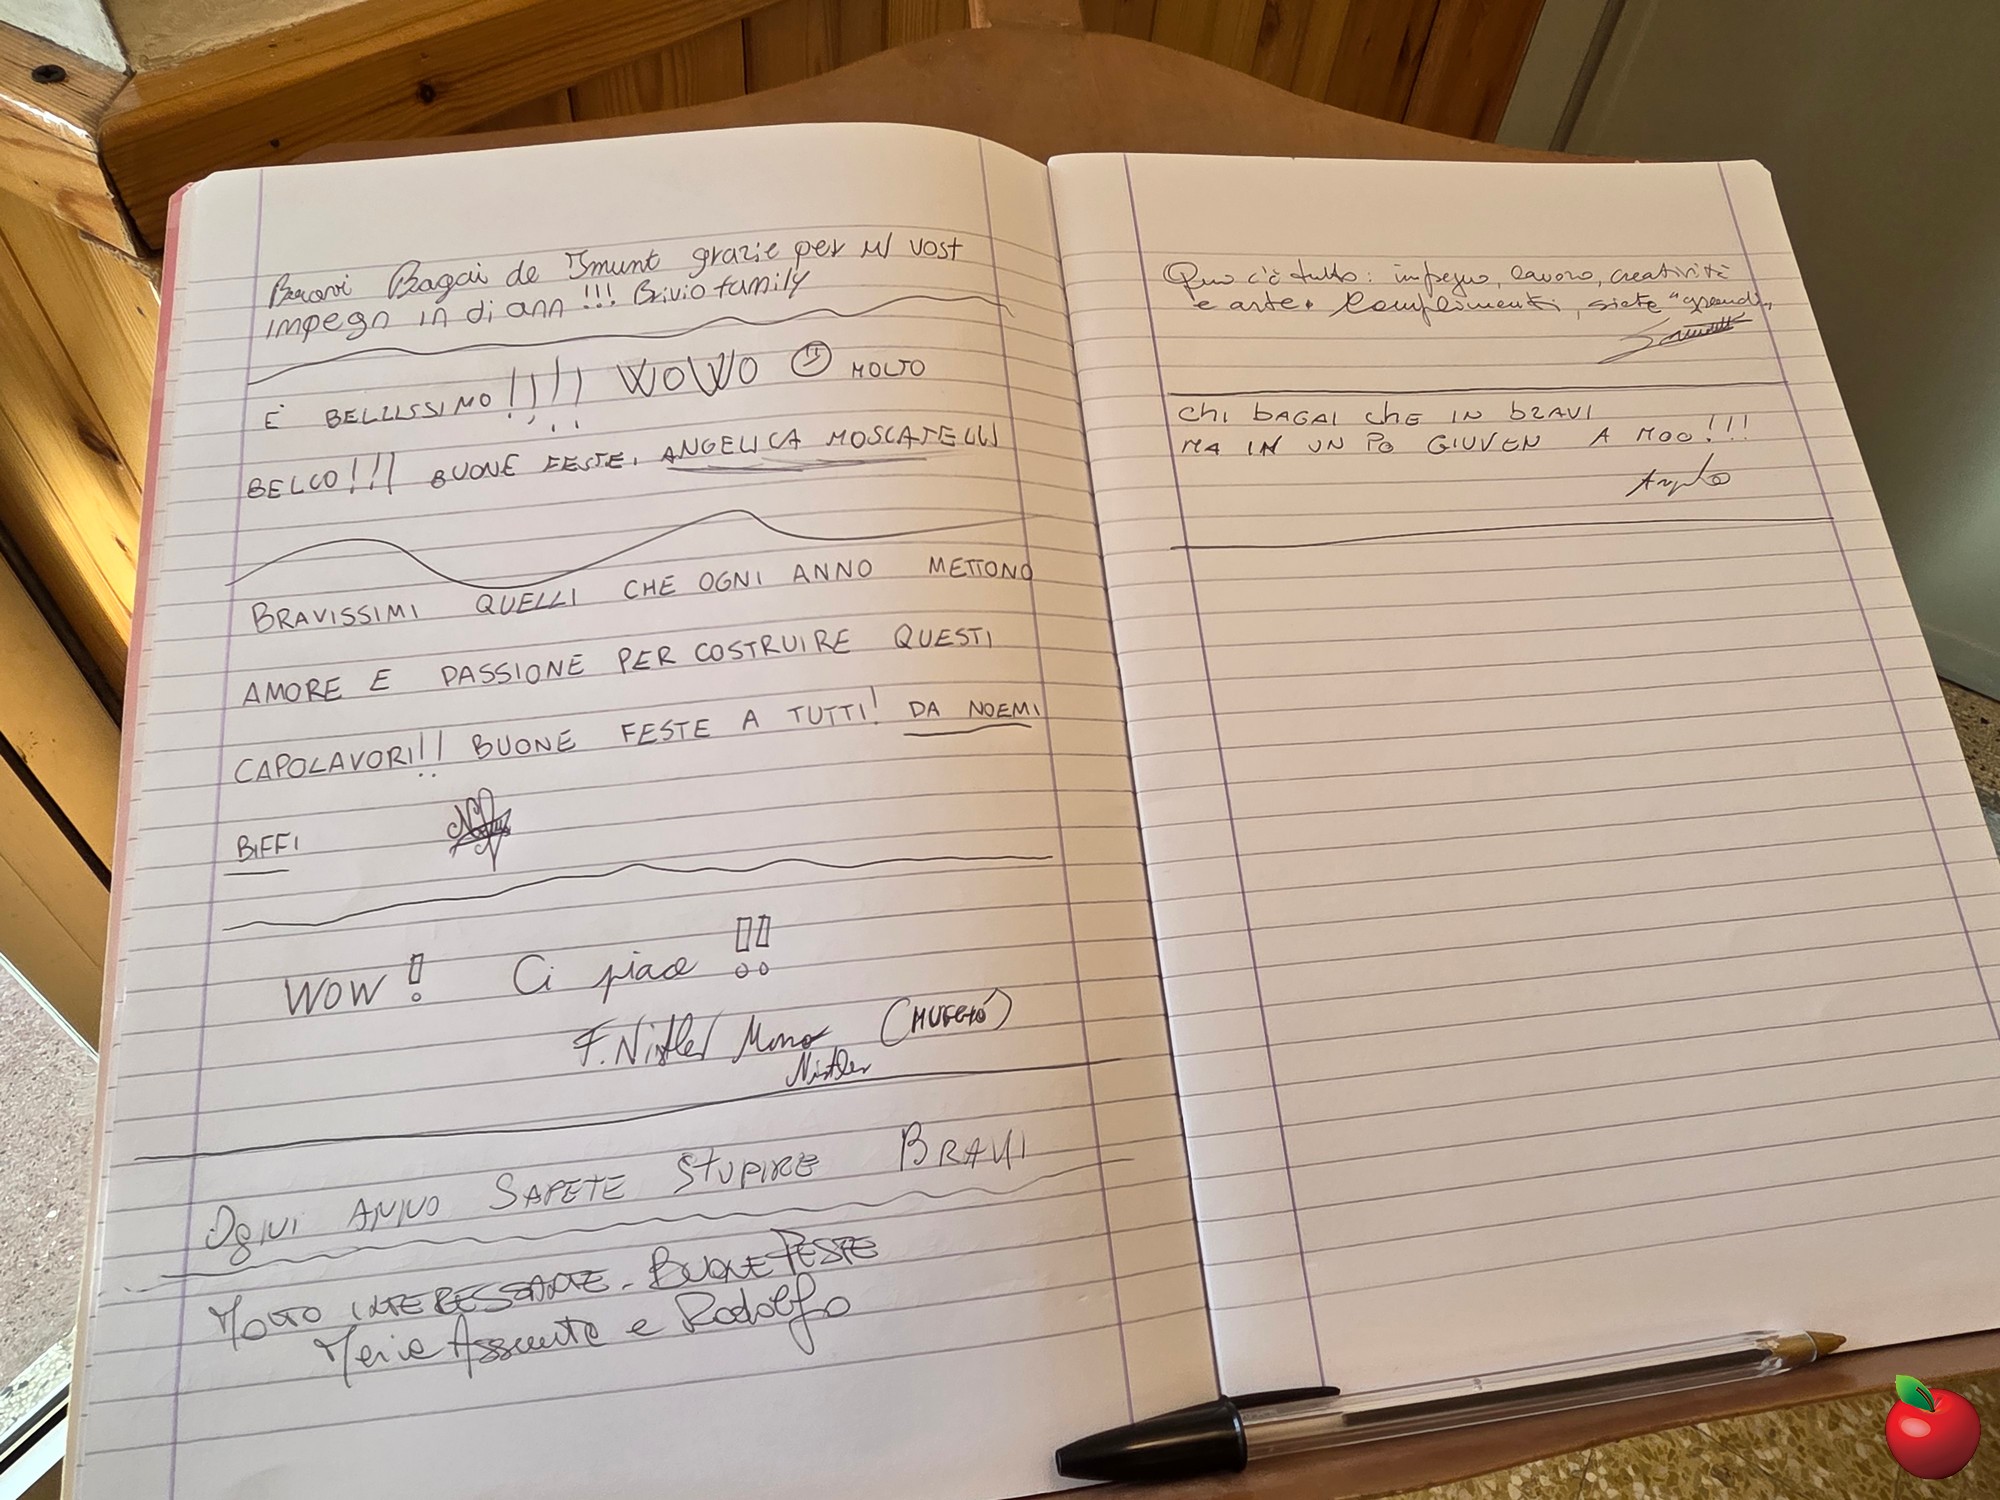 Bravi Bagai de Ismunt grazie per ul vost
impegn in di ann!!! Brivio family
È BELLISSIMO!!!! WOWO MOLTO
BELLO!!! BUONE FESTE, ANGELICA MOSCATELLI
BRAVISSIMI QUELLI CHE OGNI ANNO METTONO
AMORE E PASSIONE PER COSTRUIRE QUESTI
CAPOLAVORI!!! BUONE FESTE A TUTTI! DA NOEMI
BIFFI
WOW! Ci piace!!
F. Nistler (MUGGIÓ)
Nistler
OGNI ANNO SAPETE STUPIRE BRAVI
MOLTO INTERESSANTE. BUONE FESTE
Maria Assunta e Rodolfo
Qui c'è tutto: impegno, lavoro, creatività
e arte. Complimenti, siete "grandi"
CHI BAGAI CHE IN BRAVI
MA IN UN PO GIUVEN A MOO!!!